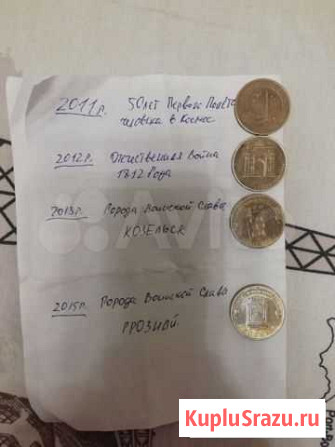 2011г. 50 лет Первого Полёта
человека в Космос
2012г. Отечественная Война
1812 Года
2013г. Города Воинской Слава
КОЗЕЛЬСК
2015г. Города Воинской Слава
ГРОЗНЫЙ.
Avito
KupluSrazu.ru